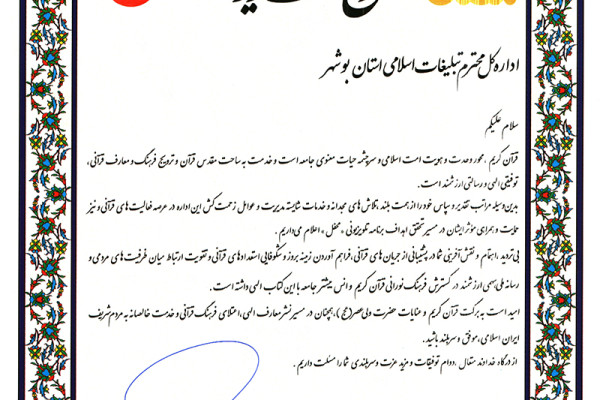 اداره کل محترم تبلیغات اسلامی استان بوشهر
سلام علیکم
قرآن کریم ، محور وحدت و هویت امت اسلامی و سرچشمه حیات معنوی جامعه است و خدمت به ساحت مقدس قرآن و ترویج فرهنگ و معارف قرآنی،
توفیقی الهی و رسالتی ارزشمند است.
بدین‌وسیله مراتب تقدیر و سپاس خود را از همت بلند، تلاش های مجدانه و خدمات شایسته مدیریت و عوامل زحمت کش این اداره در عرصه فعالیت های قرآنی و نیز
حمایت و همراهی مؤثر ایشان در مسیر تحقق اهداف برنامه تلویزیونی «محفل» اعلام می‌داریم.
بی‌تردید، اهتمام و نقش آفرینی شما در پشتیبانی از جریان های قرآنی، فراهم آوردن زمینه بروز و شکوفایی استعدادهای قرآنی و تقویت ارتباط میان ظرفیت های مردمی و
رسانه ملی سهمی ارزشمند در گسترش فرهنگ نورانی قرآن کریم و انس بیشتر جامعه با این کتاب الهی داشته است.
امید است به برکت قرآن کریم و عنایات حضرت ولی عصر (عج)، همچنان در مسیر نشر معارف الهی، اعتلای فرهنگ قرآنی و خدمت خالصانه به مردم شریف
ایران اسلامی، موفق و سربلند باشید.
از درگاه خداوند متعال، دوام توفیقات و مزید عزت و سربلندی شما را مسئلت داریم.